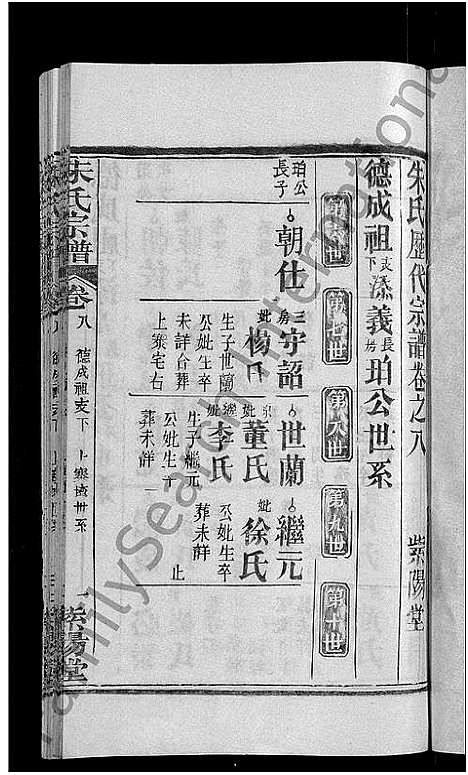 朱氏歷代宗譜卷之八 紫陽堂
德成祖支下添義長房珀公世系
第六世 第七世 第八世 第九世 第十世
珀公長子
朝仕
三房守詔
妣楊氏
生子世蘭
公妣生卒
未詳合葬
上寨宅右
世蘭
妣董氏
李氏
生子繼元
公妣生卒
葬未詳
繼元
妣徐氏
公妣生卒
葬未詳
止
朱氏宗譜
卷八 德成祖支下
一 紫陽堂
FamilySearch International